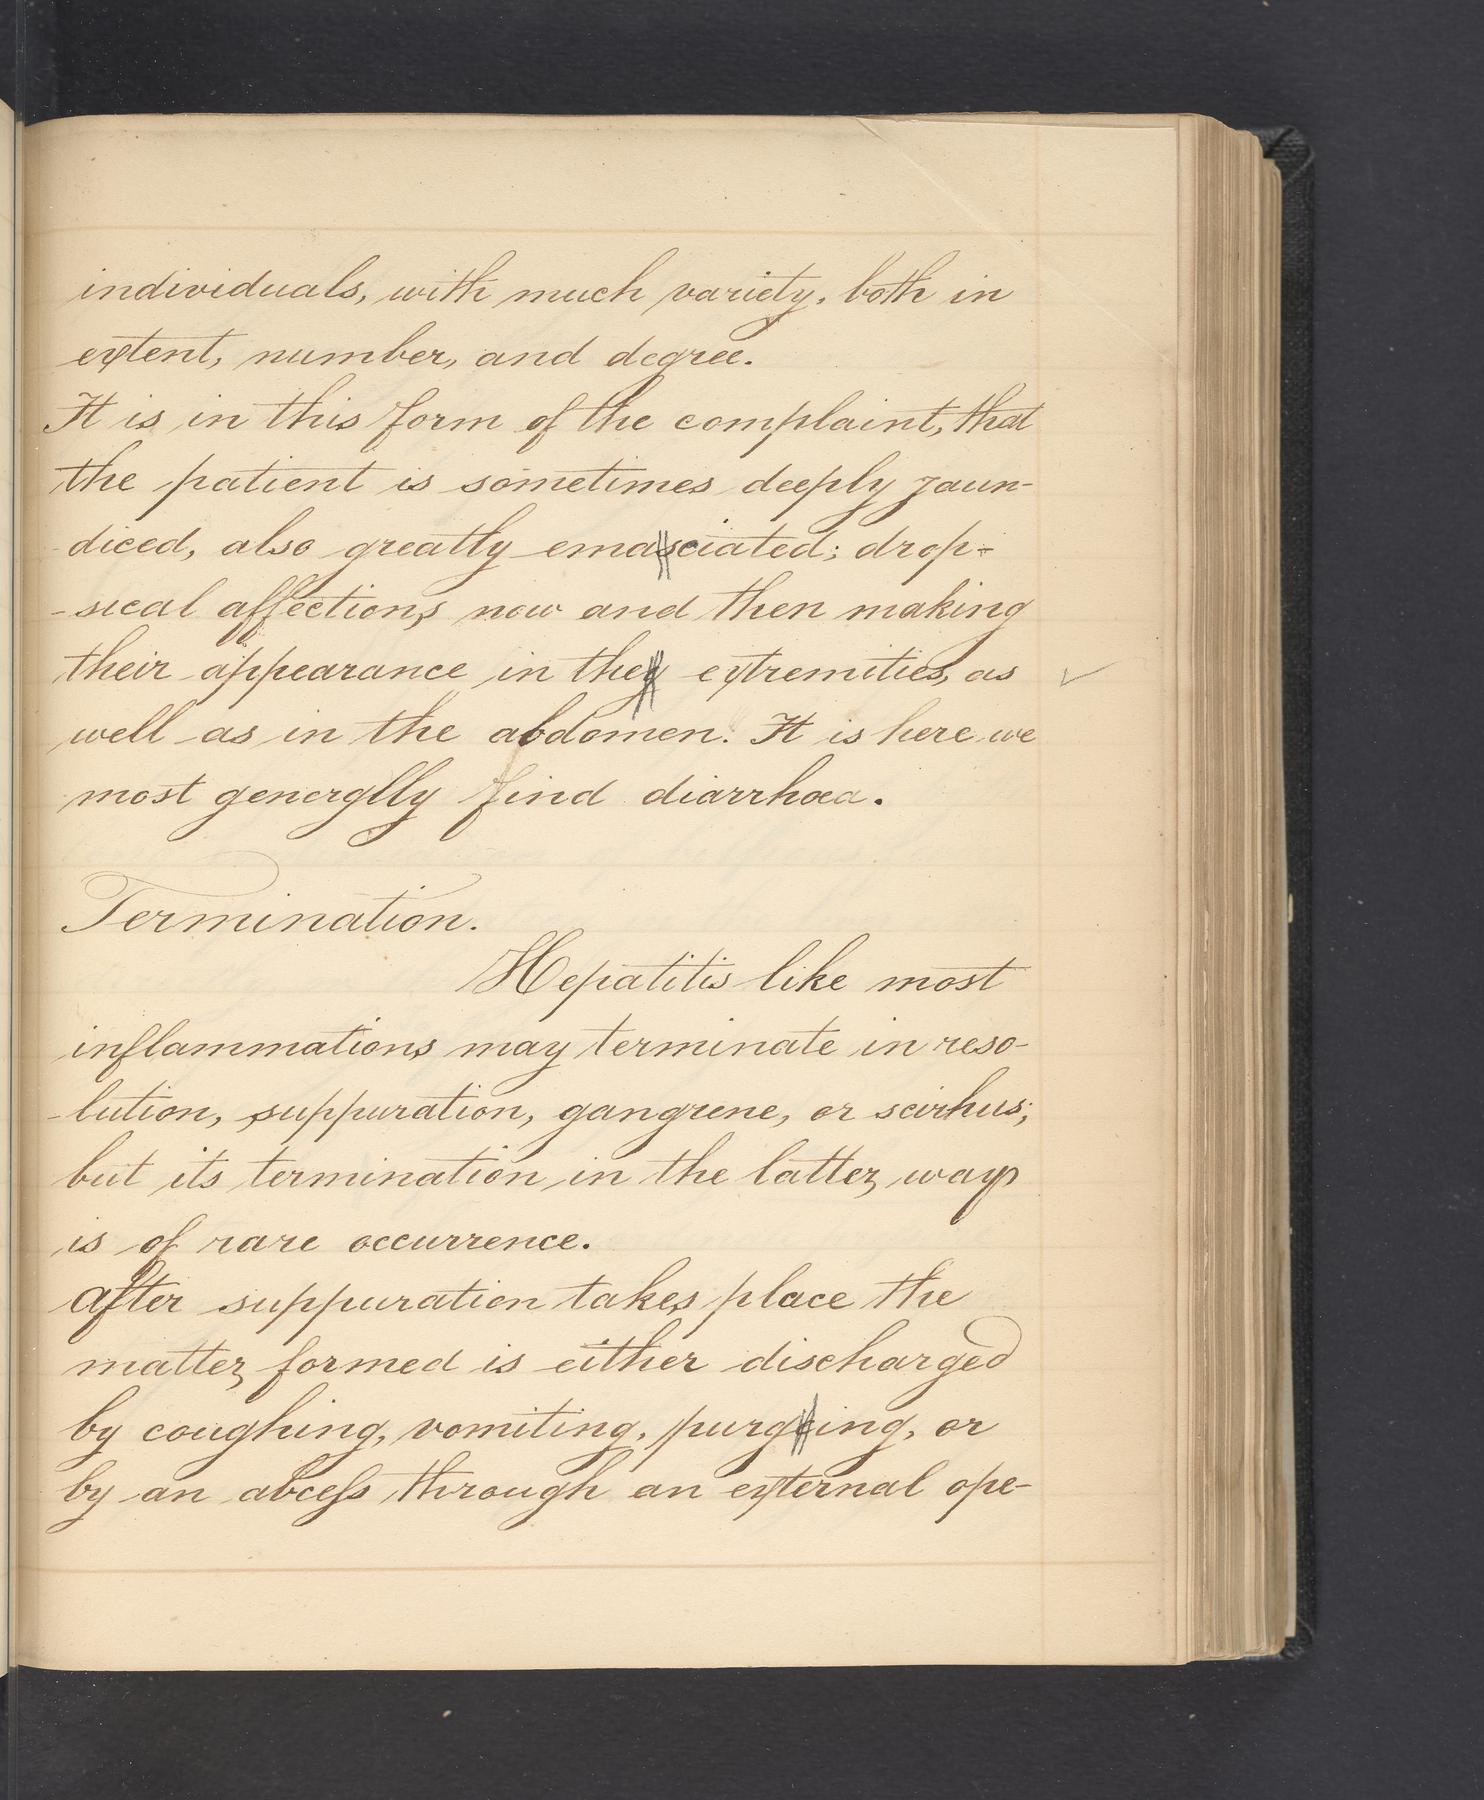 individuals, with much variety, both in
extent, number, and degree.
It is in this form of the complaint, that
the patient is sometimes deeply jaun-
diced, also greatly emasciated; drop-
-sical affections now and then making
their appearance in they extremities, as ✓
well as in the abdomen. It is here we
most generglly find diarrhœa.
Termination.
Hepatitis like most
inflammations may terminate in reso-
-lution, suppuration, gangrene, or scirhus;
but its termination in the latter way
is of rare occurrence.
After suppuration takes place the
matter formed is either discharged
by coughing, vomiting, purgeing, or
by an abcess through an external ope-